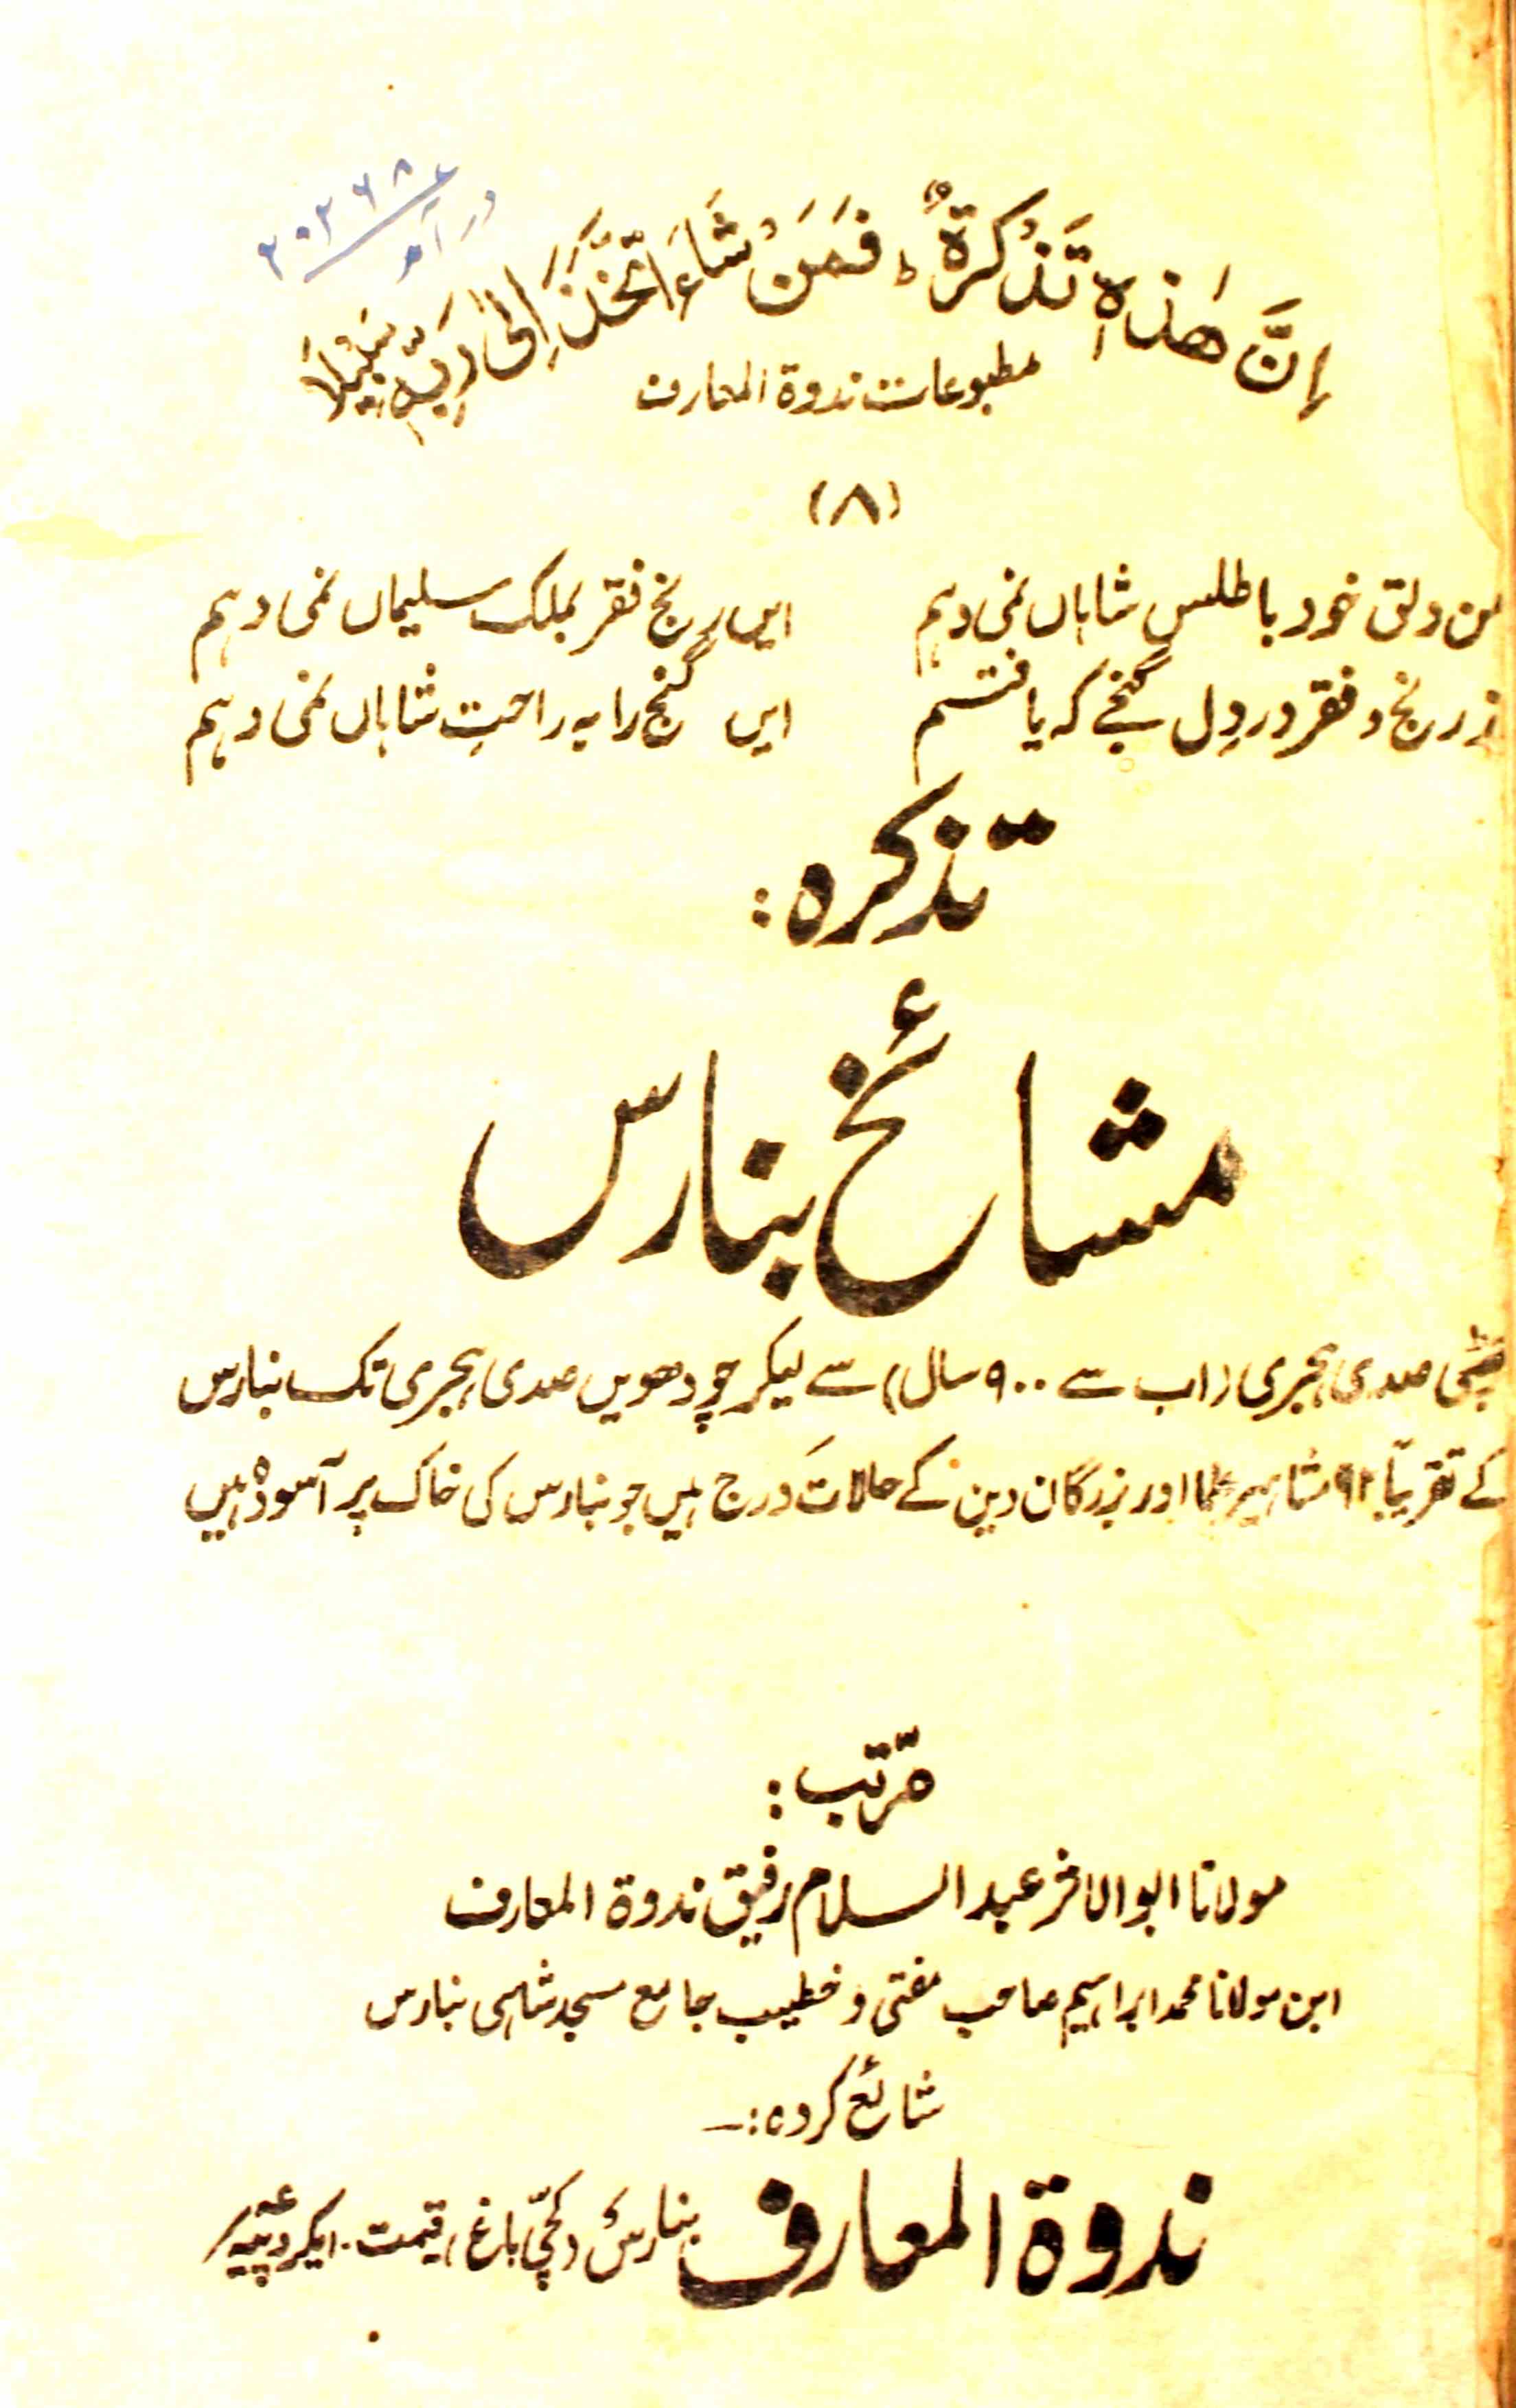 ۲۰۲۶۸
درآمد
إِنَّ هٰذِهٖ تَذْكِرَةٌ ؕ فَمَنْ شَاءَ اتَّخَذَ إِلىٰ رَبِّهٖ سَبِيْلًا
مطبوعات ندوة المعارف
(۸)
من دلق خود باطلس شاہاں نمی دہم ایں رنج فقر بملک سلیماں نمی دہم
زرنج و فقر در دِل گنجے کہ یافتسم ایں گنج را بہ راحتِ شاہاں نمی دہم
تذکرہ:
مشائخ بنارس
چھٹی صدی ہجری (اب سے ۹۰۰ سال) سے لیکر چودھویں صدی ہجری تک بنارس
کے تقریبًا ۹۲ مشاہیر علما اور بزرگان دین کے حالات درج ہیں جو بنارس کی خاک پر آسودہ ہیں
مرّتب:
مولانا ابوالاثر عبدالسلام رفیق ندوة المعارف
ابن مولانا محمد ابراہیم صاحب مفتی و خطیب جامع مسجد شاہی بنارس
شائع کردہ:ـ
ندوة المعارف بنارس (کچّی باغ) قیمت۔ ایکروپیہ